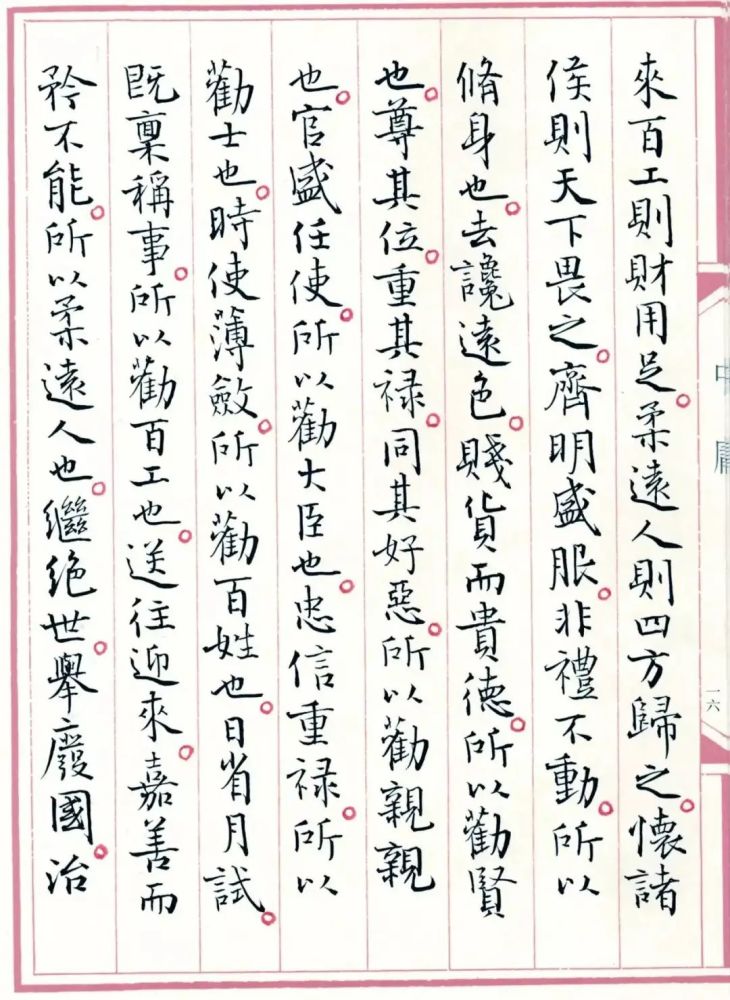 來百工則財用足。柔遠人則四方歸之。懷諸
侯則天下畏之。齊明盛服。非禮不動。所以
脩身也。去讒遠色。賤貨而貴德。所以勸賢
也。尊其位。重其祿。同其好惡。所以勸親親
也。官盛任使。所以勸大臣也。忠信重祿。所以
勸士也。時使薄斂。所以勸百姓也。日省月試。
既稟稱事。所以勸百工也。送往迎來。嘉善而
矜不能。所以柔遠人也。繼絕世。舉廢國。治
中庸
一六